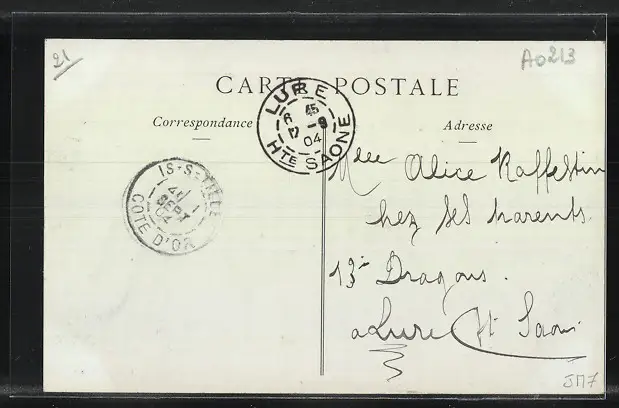 21
A0213
CARTE POSTALE
Correspondance
Adresse
LURE
6 45
12 -9
04
Hte SAONE
IS-S-TILLE
SEPT
04
COTE D'OR
Mlle Alice Raffestin
chez ses parents
13e Dragons.
a Lure Hte Saone
SM7